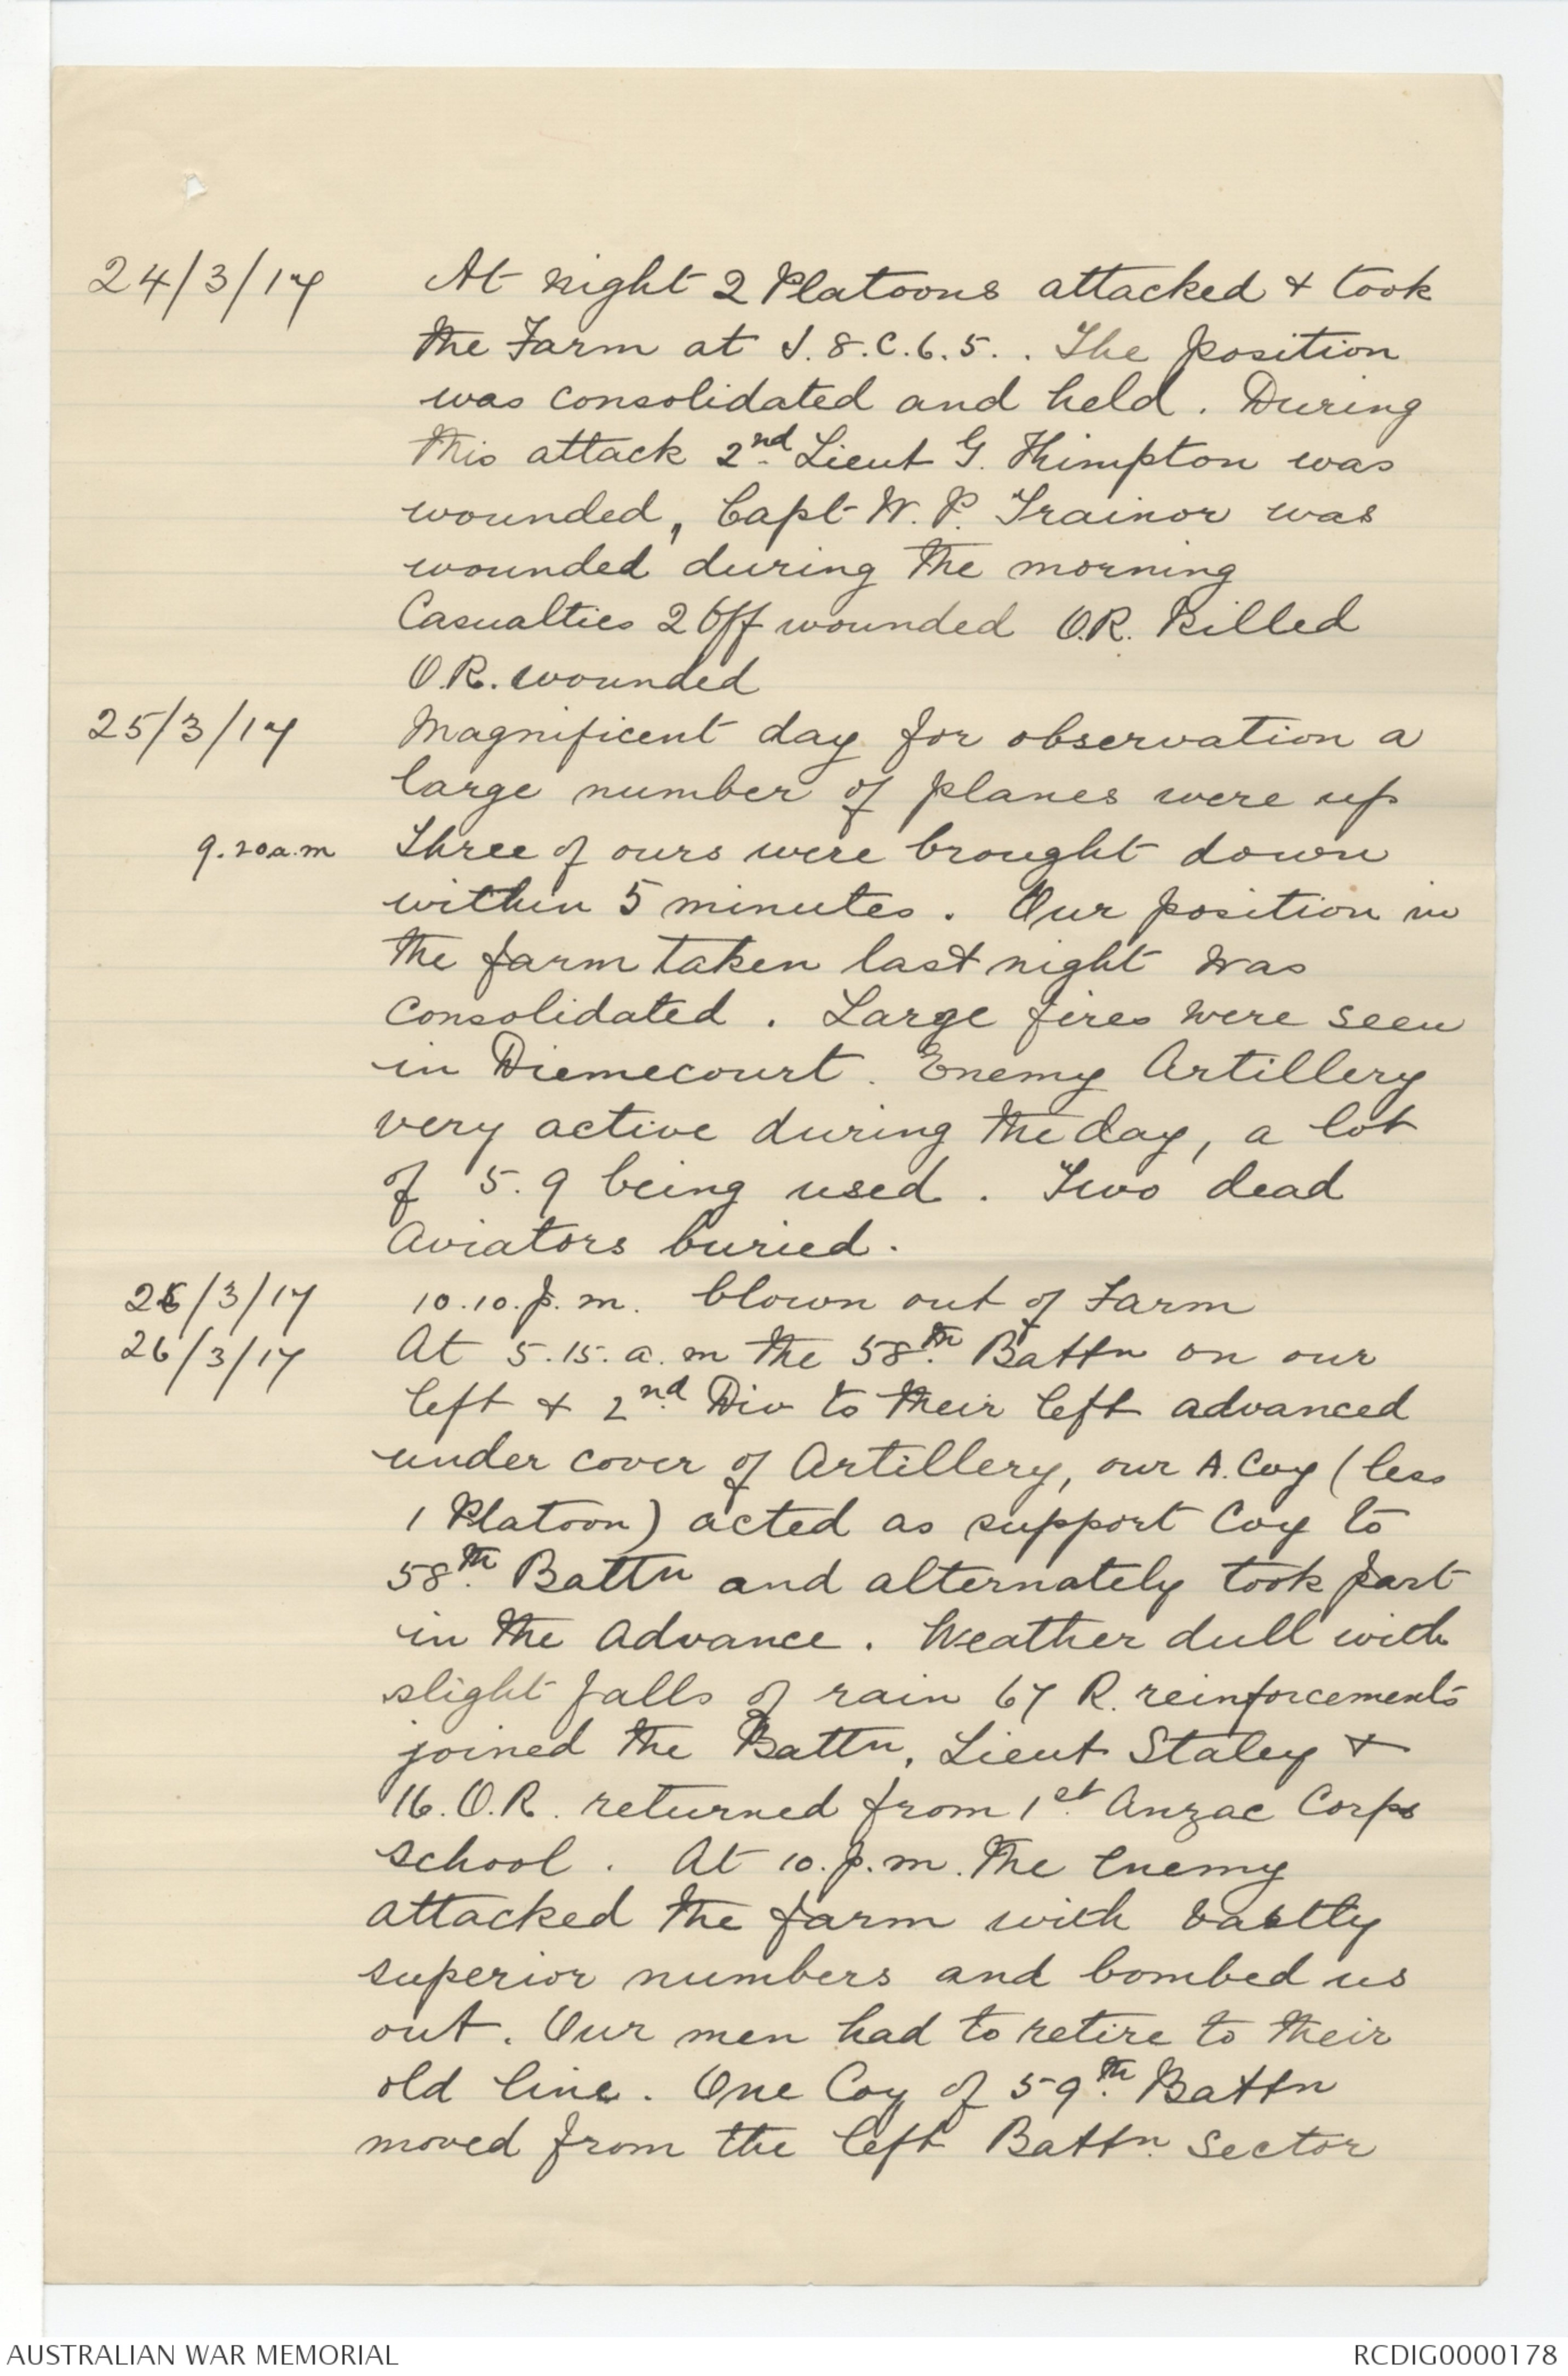 24/3/17 At night 2 Platoons attacked & took
the Farm at J.8.C.6.5.. The position
was consolidated and held. During
this attack 2nd. Lieut G. Kimpton was
wounded, Capt W. P. Trainor was
wounded during the morning
Casualties 2 Off wounded O.R. Killed
O.R. wounded
25/3/17 Magnificent day for observation a
large number of planes were up
9.20a.m Three of ours were brought down
within 5 minutes. Our position in
the farm taken last night was
consolidated. Large fires were seen
in Diemecourt. Enemy Artillery
very active during the day, a lot
of 5.9 being used. Two dead
Aviators buried.
/3/17 10.10.p.m. blown out of Farm
26/3/17 At 5.15.a.m the 58th. Battn on our
left & 2nd. Div to their left advanced
under cover of Artillery, our A. Coy (less
1 Platoon) acted as support Coy to
58th. Battn and alternately took part
in the advance. Weather dull with
slight falls of rain 67 R. reinforcements
joined the Battn, Lieut Staley &
16. O.R. returned from 1st. Anzac Corps
school. At 10.p.m. the Enemy
attacked the farm with vastly
superior numbers and bombed us
out. Our men had to retire to their
old line. One Coy of 59th. Battn
moved from the left Battn. Sector
AUSTRALIAN WAR MEMORIAL
RCDIG0000178